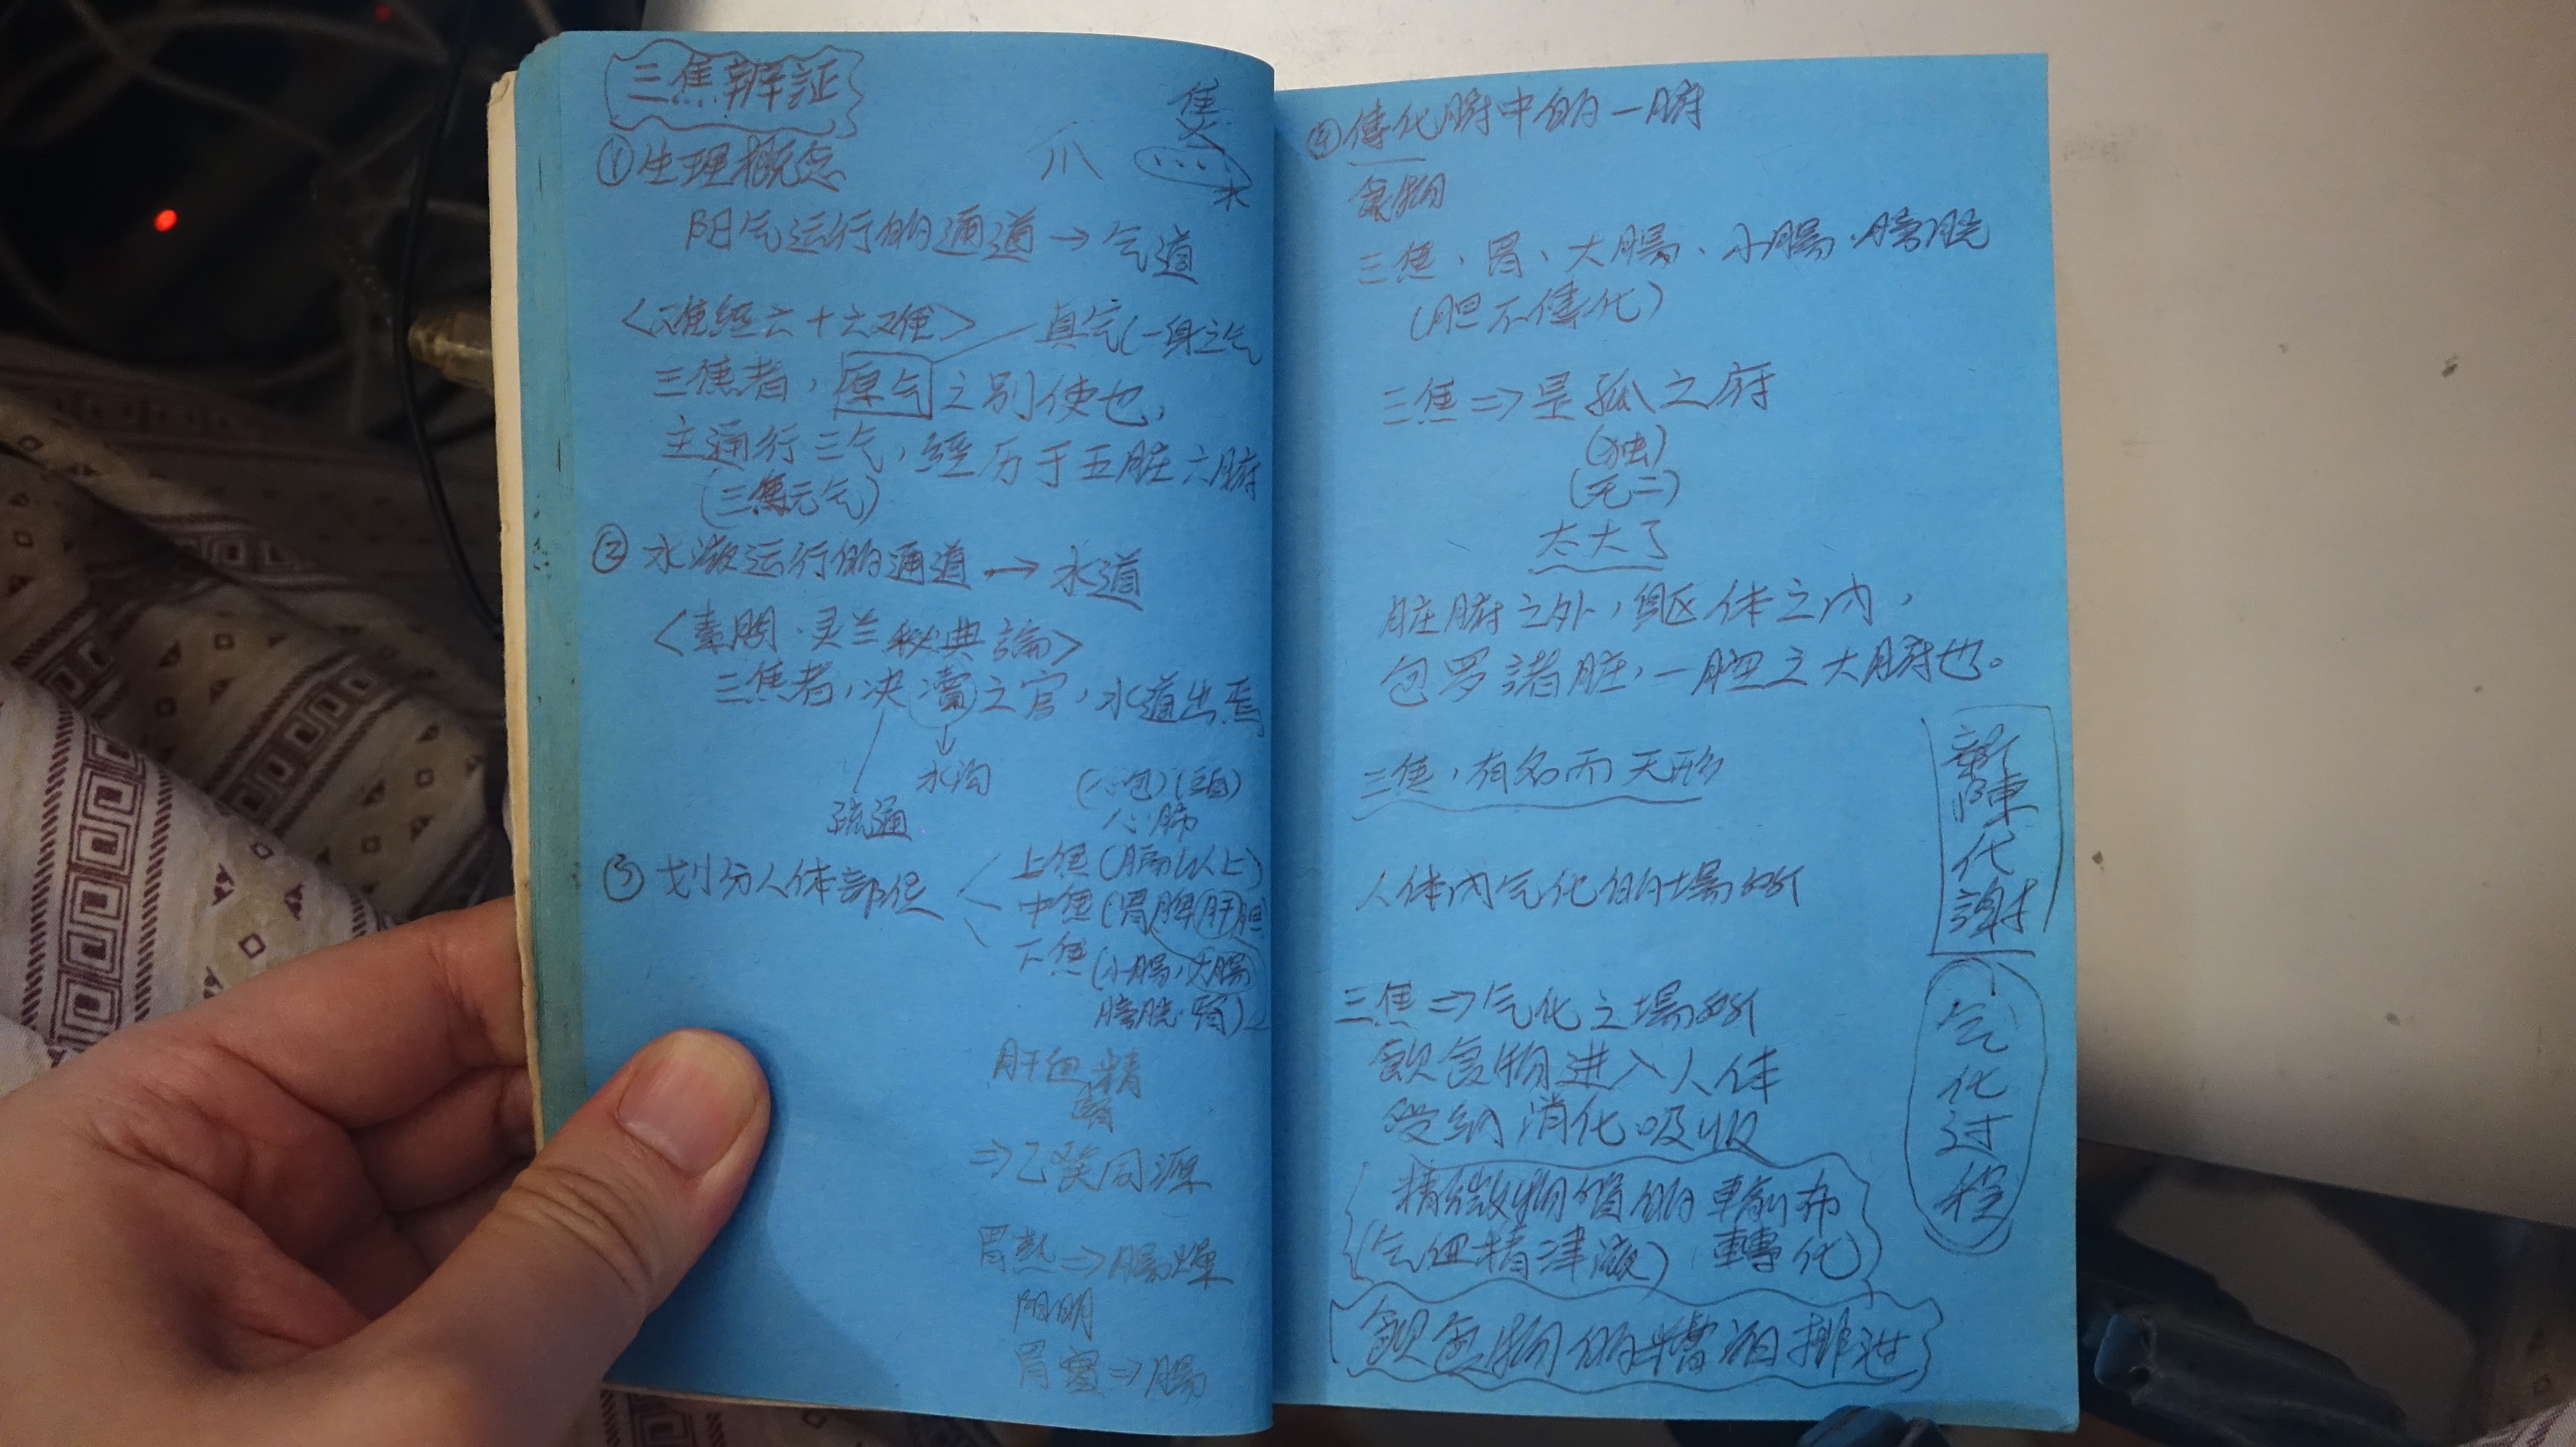 三焦辨証
焦
①生理概念
爪
水
阳气运行的通道→气道
<难經六十六难>
真气(一身之气
三焦者，原气之别使也，
主通行三气，經历于五脏六腑
(三焦元气)
②水液运行的通道→水道
<素問·灵兰秘典論>
三焦者，决瀆之官，水道出焉
水沟
疏通
(心包)(頭)
心肺
③划分人体部位
上焦(膈以上)
中焦(胃脾肝胆
下焦(小腸，大腸
膀胱·腎)
肝血，精
腎
⇒乙癸同源
胃热⇒腸燥
阳明
胃實⇒腸
④傳化腑中的一腑
食物
三焦、胃、大腸、小腸、膀胱
(胆不傳化)
三焦⇒是孤之府
(独)
(无二)
太大了
脏腑之外，軀体之内，
包罗諸脏，一腔之大腑也。
三焦，有名而无形
人体内气化的場所
三焦⇒气化之場所
飲食物进入人体
受納消化吸收
精微物質的輸布
(气血精津液) 轉化
飲食物的糟粕排泄
新陳代謝
气化过程